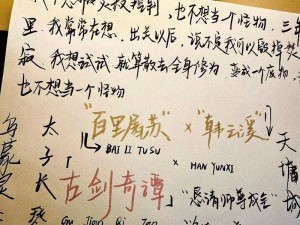 也不想当一个怪物
里.我常常在想,出关以后,说不定我们以
寂.我想试试,就算散去全身修为,变成一个废物,
也不想当一个怪物
"百里屠苏"×"韩云溪"
BAI LI TU SU × HAN YUNXI
太子长琴
古剑奇谭
"恳请师尊成全"
天墉城
Gu Jian Qi Tan
乌蒙灵